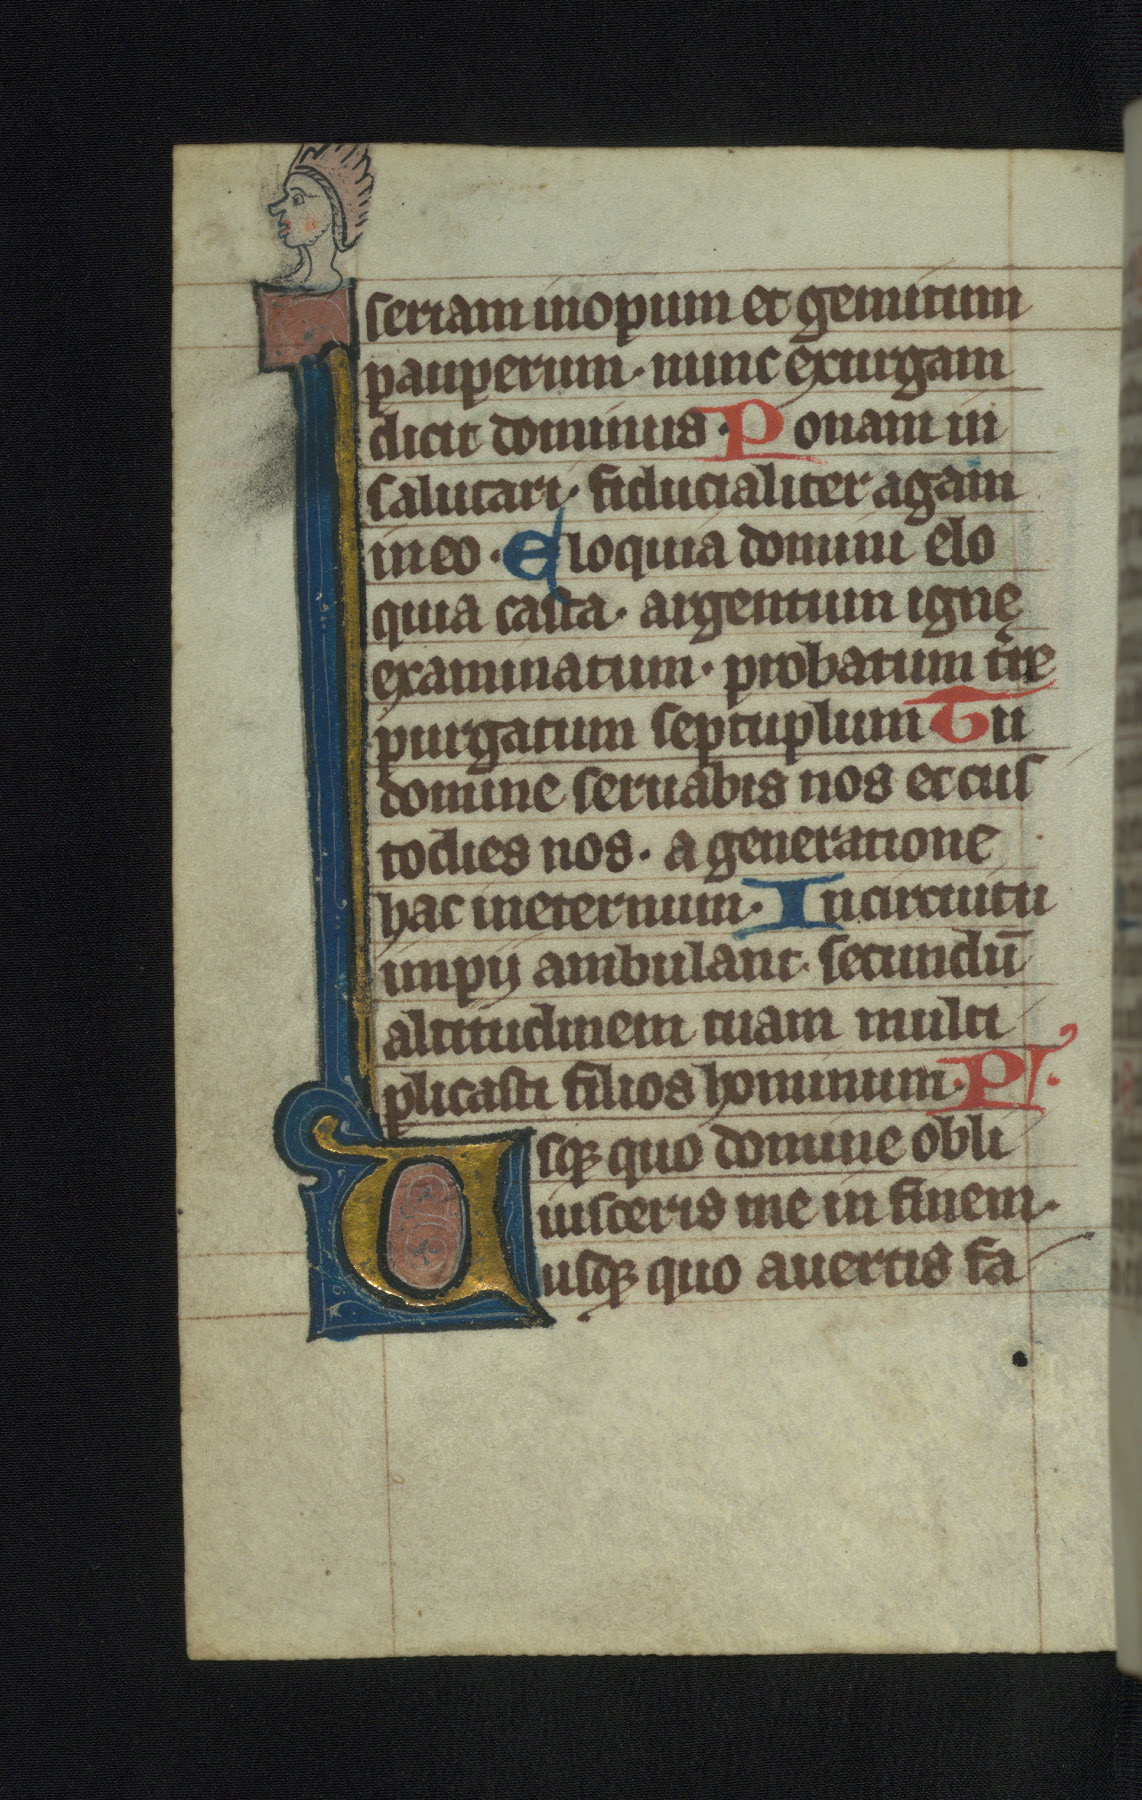 seriam inopum et gemitum
pauperum · nunc exurgam
dicit dominus · Ponam in
salutari · fiducialiter agam
in eo · Eloquia domini elo
quia casta · argentum ignę
examinatum · probatum tr̄e
purgatum septuplum Tu
domine seruabis nos et cus
todies nos · a generatione
hac ineternum · Incircuitu
impij ambulant · secundū
altitudinem tuam multi
plicasti filios hominum · Ps ·
Usqꝫ quo domine obli
uisceris me in finem ·
usqꝫ quo auertis fa